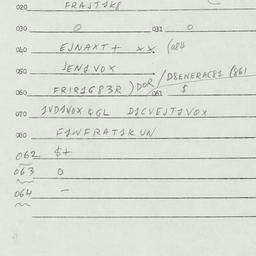 020 FRAJTJK8
030 O 031 O
040 EJNAXT + XX (084
050 JENJ VOX
060 FRIRIG83R ) DOR / DSENERAC81 (861
061 $
070 JVDJVOX QGL DJCVEJTJVOX
080 FJWFRATJKUN
062 $+
063 O
064 —